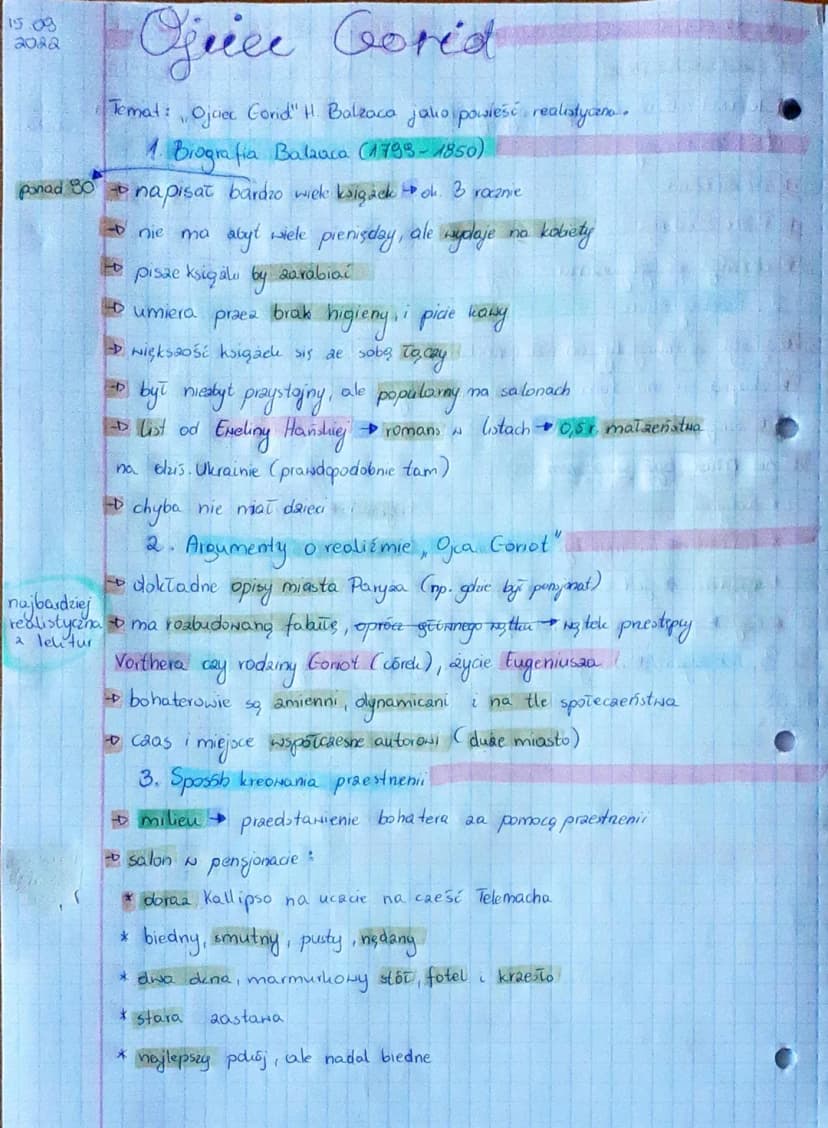 15.09
2022
Ojciec Goriot
Temat: „Ojciec Goriot" H. Balzaca jako powieść realistyczna.
1. Biografia Balzaca (1799-1850)
ponad 90
→ napisał bardzo wiele książek → ok. 3 rocznie
→ nie ma zbyt wiele pieniędzy, ale wydaje na kobiety
→ pisze książki by zarabiać
→ umiera przez brak higieny, i picie kawy
→ większość książek się ze sobą łączy
→ był niezbyt przystojny, ale popularny na salonach
→ list od Eweliny Hańskiej → romans w listach → 0,5 r. małżeństwa
na dzis. Ukrainie (prawdopodobnie tam)
→ chyba nie miał dzieci
2. Argumenty o realiźmie „Ojca Goriot"
→ dokładne opisy miasta Paryża (np. gdzie był pensjonat)
najbardziej
realistyczna
z lektur
→ ma rozbudowaną fabułę, oprócz głównego wątku → wątek przestępcy
Vorthera czy rodziny Goriot (córek), życie Eugeniusza
→ bohaterowie są zmienni, dynamiczni i na tle społeczeństwa
→ czas i miejsce współczesne autorowi (duże miasto)
3. Sposób kreowania przestrzeni
→ milieu → przedstawienie bohatera za pomocą przestrzeni
→ salon w pensjonacie:
* obraz Kallipso na uczcie na cześć Telemacha
* biedny, smutny, pusty, nędzny
* dwa okna, marmurkowy stół, fotel i krzesło
* stara zastawa
* najlepszy pokój, ale nadal biedne